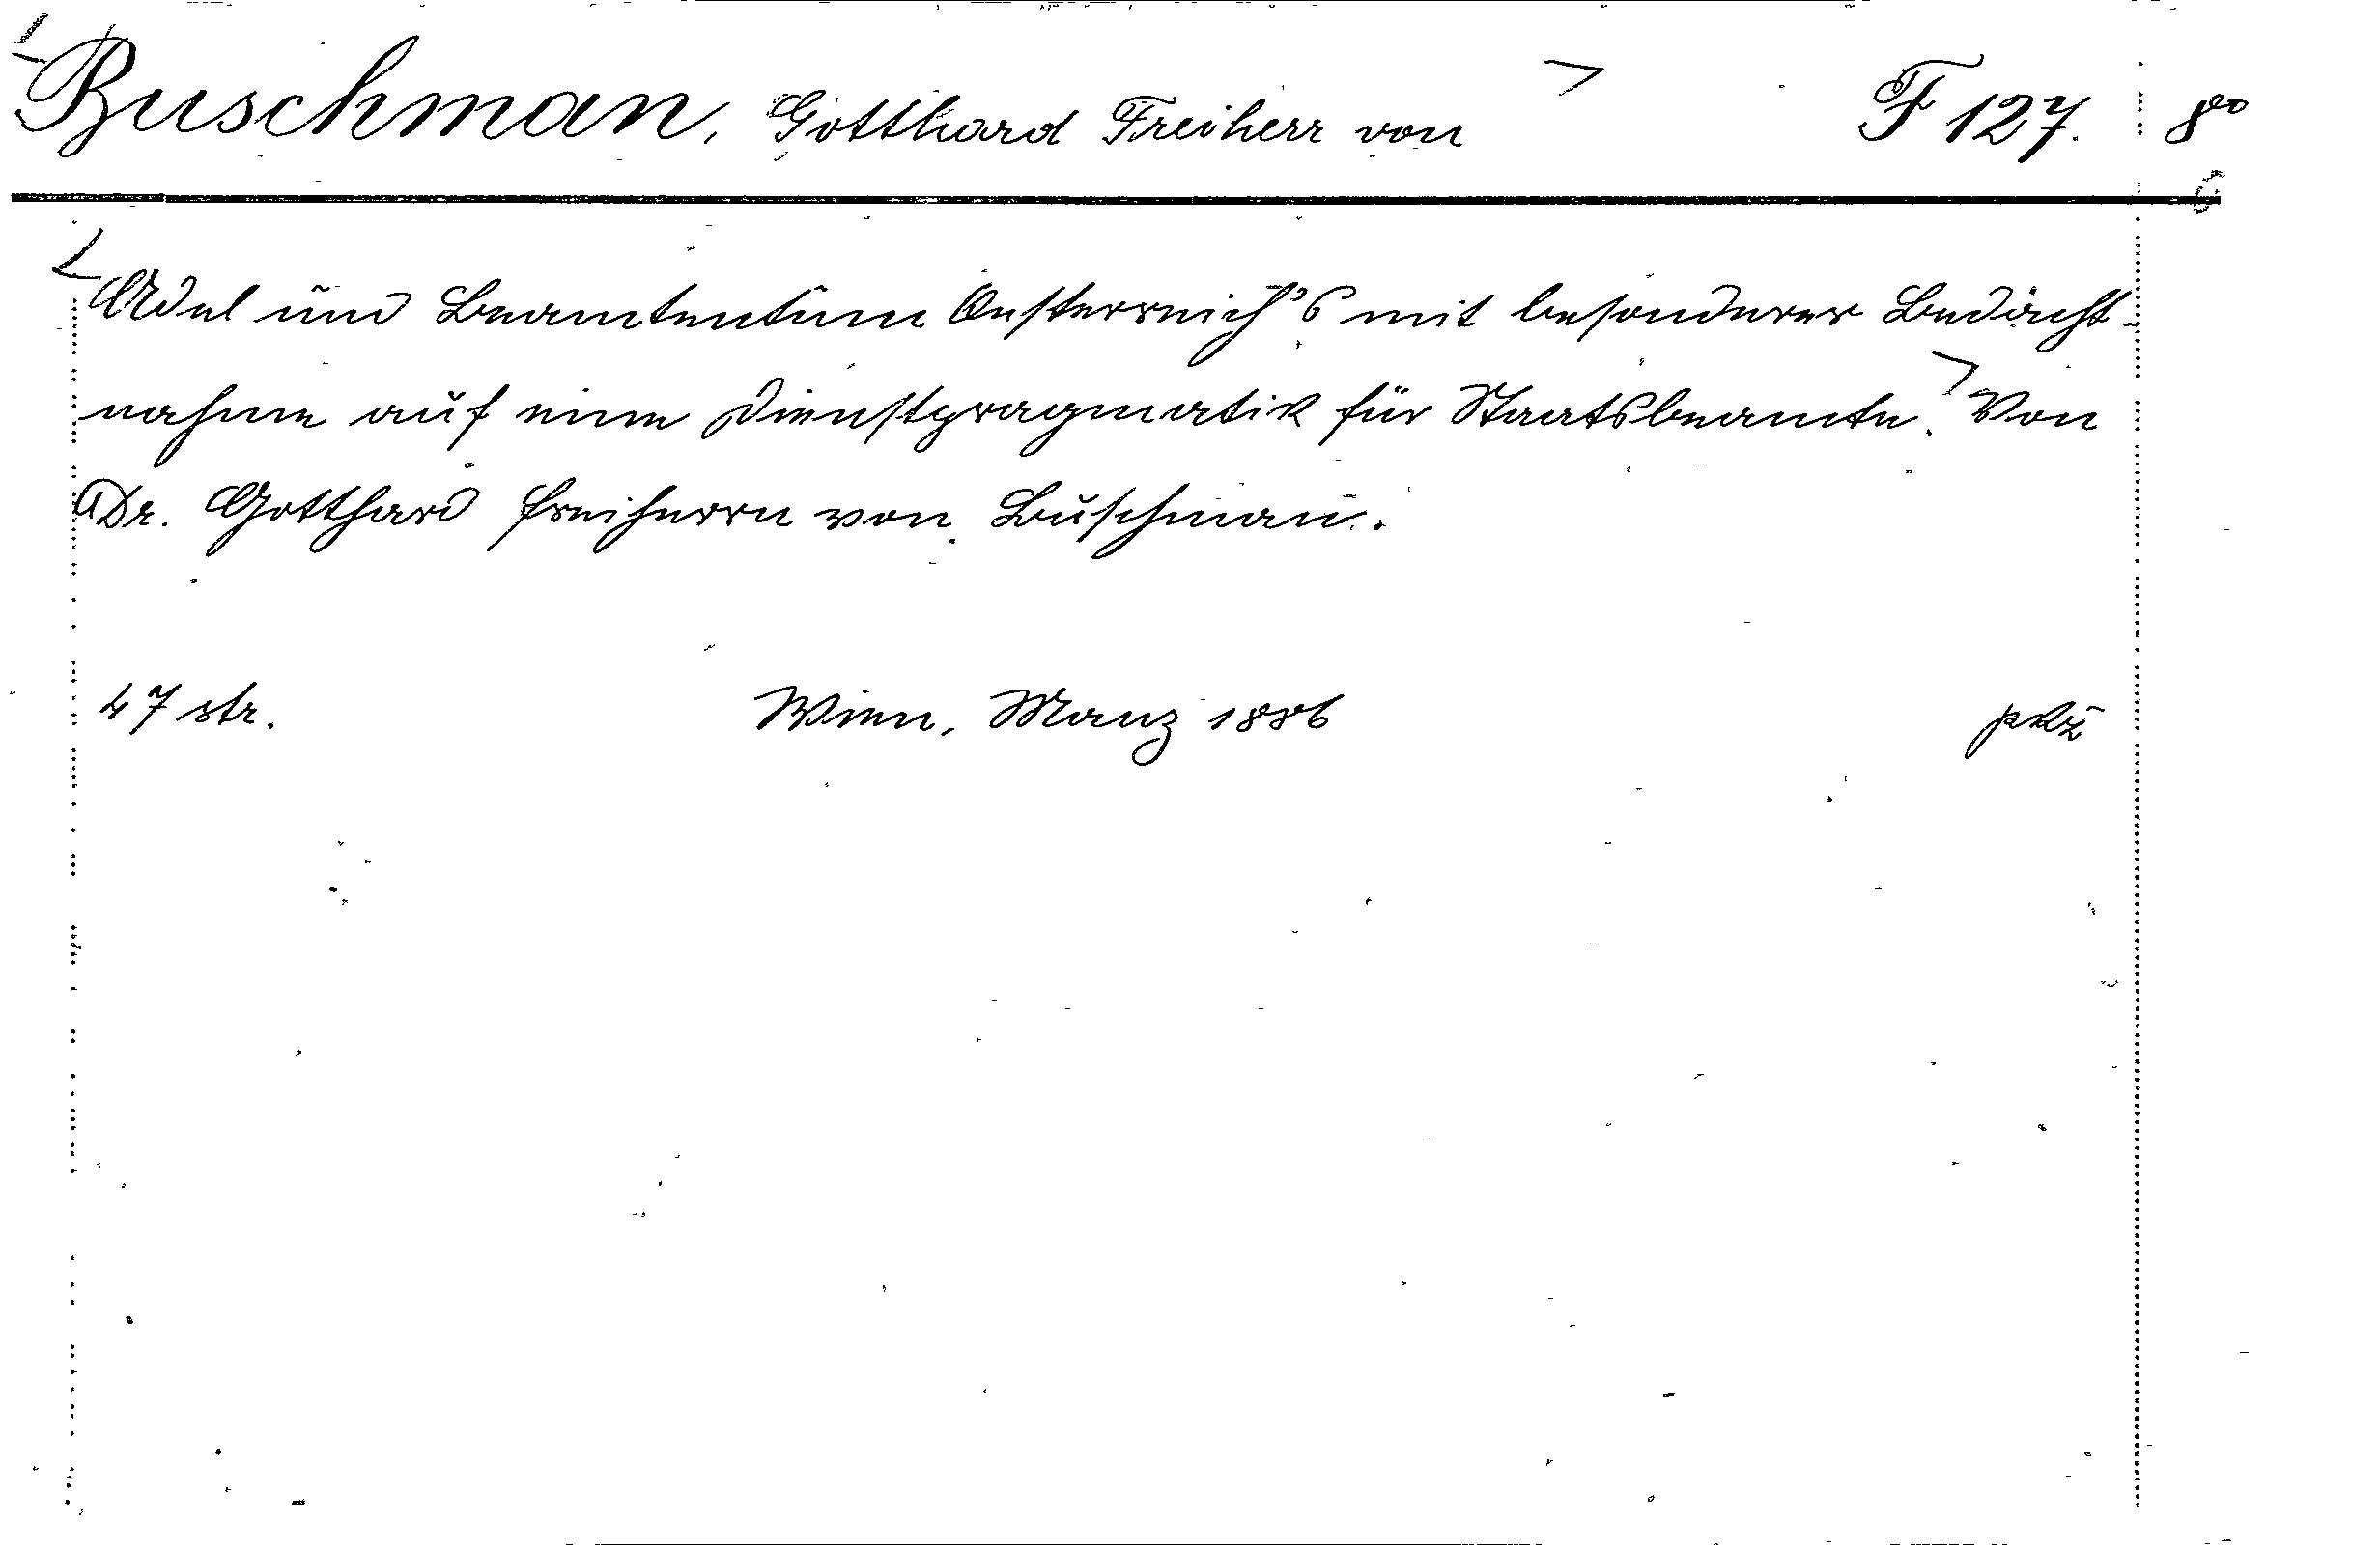 Buschman, Gotthard Freiherr von F 127. 8°
Adel und Beamtentum Oesterreich's mit besonderer Bedacht-
nahme auf eine Dienstpragmatik für Staatsbeamte. Von
Dr. Gotthard Freiherrn von Buschman.
47 str. Wien, Manz 1886